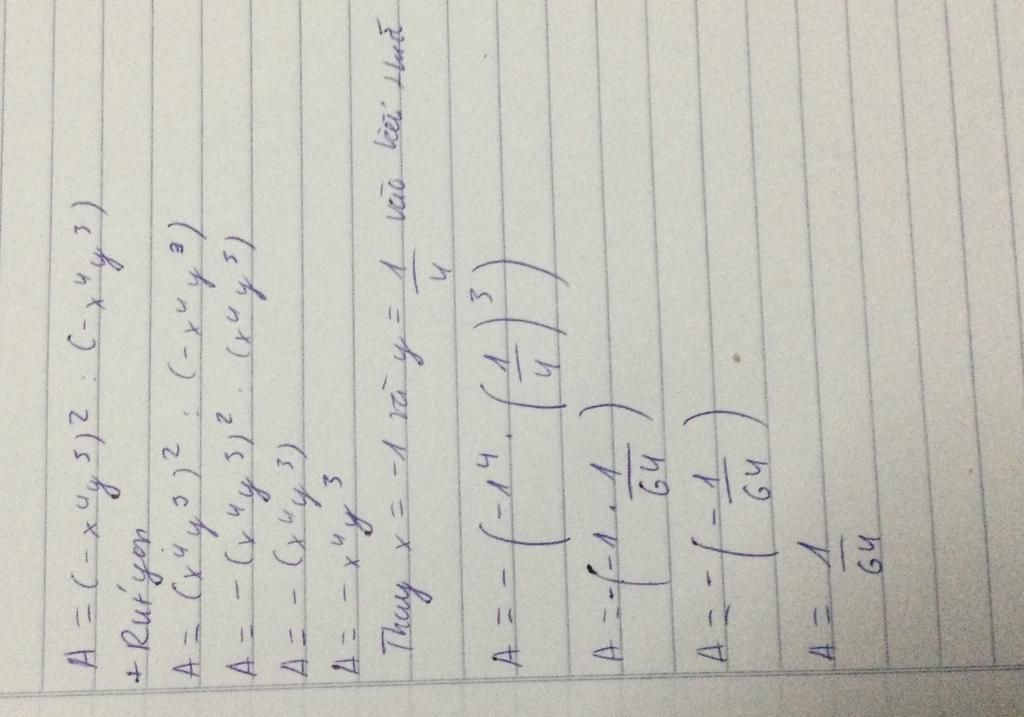 A = (-x⁴y³)² : (-x⁴y³)
+ Rút gọn
A = (x⁴y³)² : (-x⁴y³)
A = -(x⁴y³)² : (x⁴y³)
A = -(x⁴y³)
A = -x⁴y³
Thay x = -1 và y = 1/4 vào
A = -(-1⁴ . (1/4)³)
A = -(-1 . 1/64)
A = -(-1/64)
A = 1/64